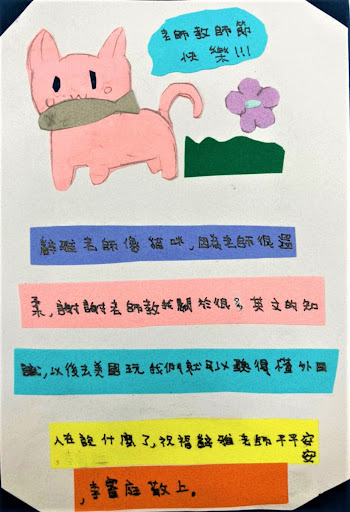 老師教師節
快樂!!!
雅老師像貓咪,因為老師很溫
柔,謝謝老師教我關於很多英文的知
識,以後去美國玩我們就可以聽得懂外國
人在說什麼了,祝福雅老師平平安
安
李庭敬上。